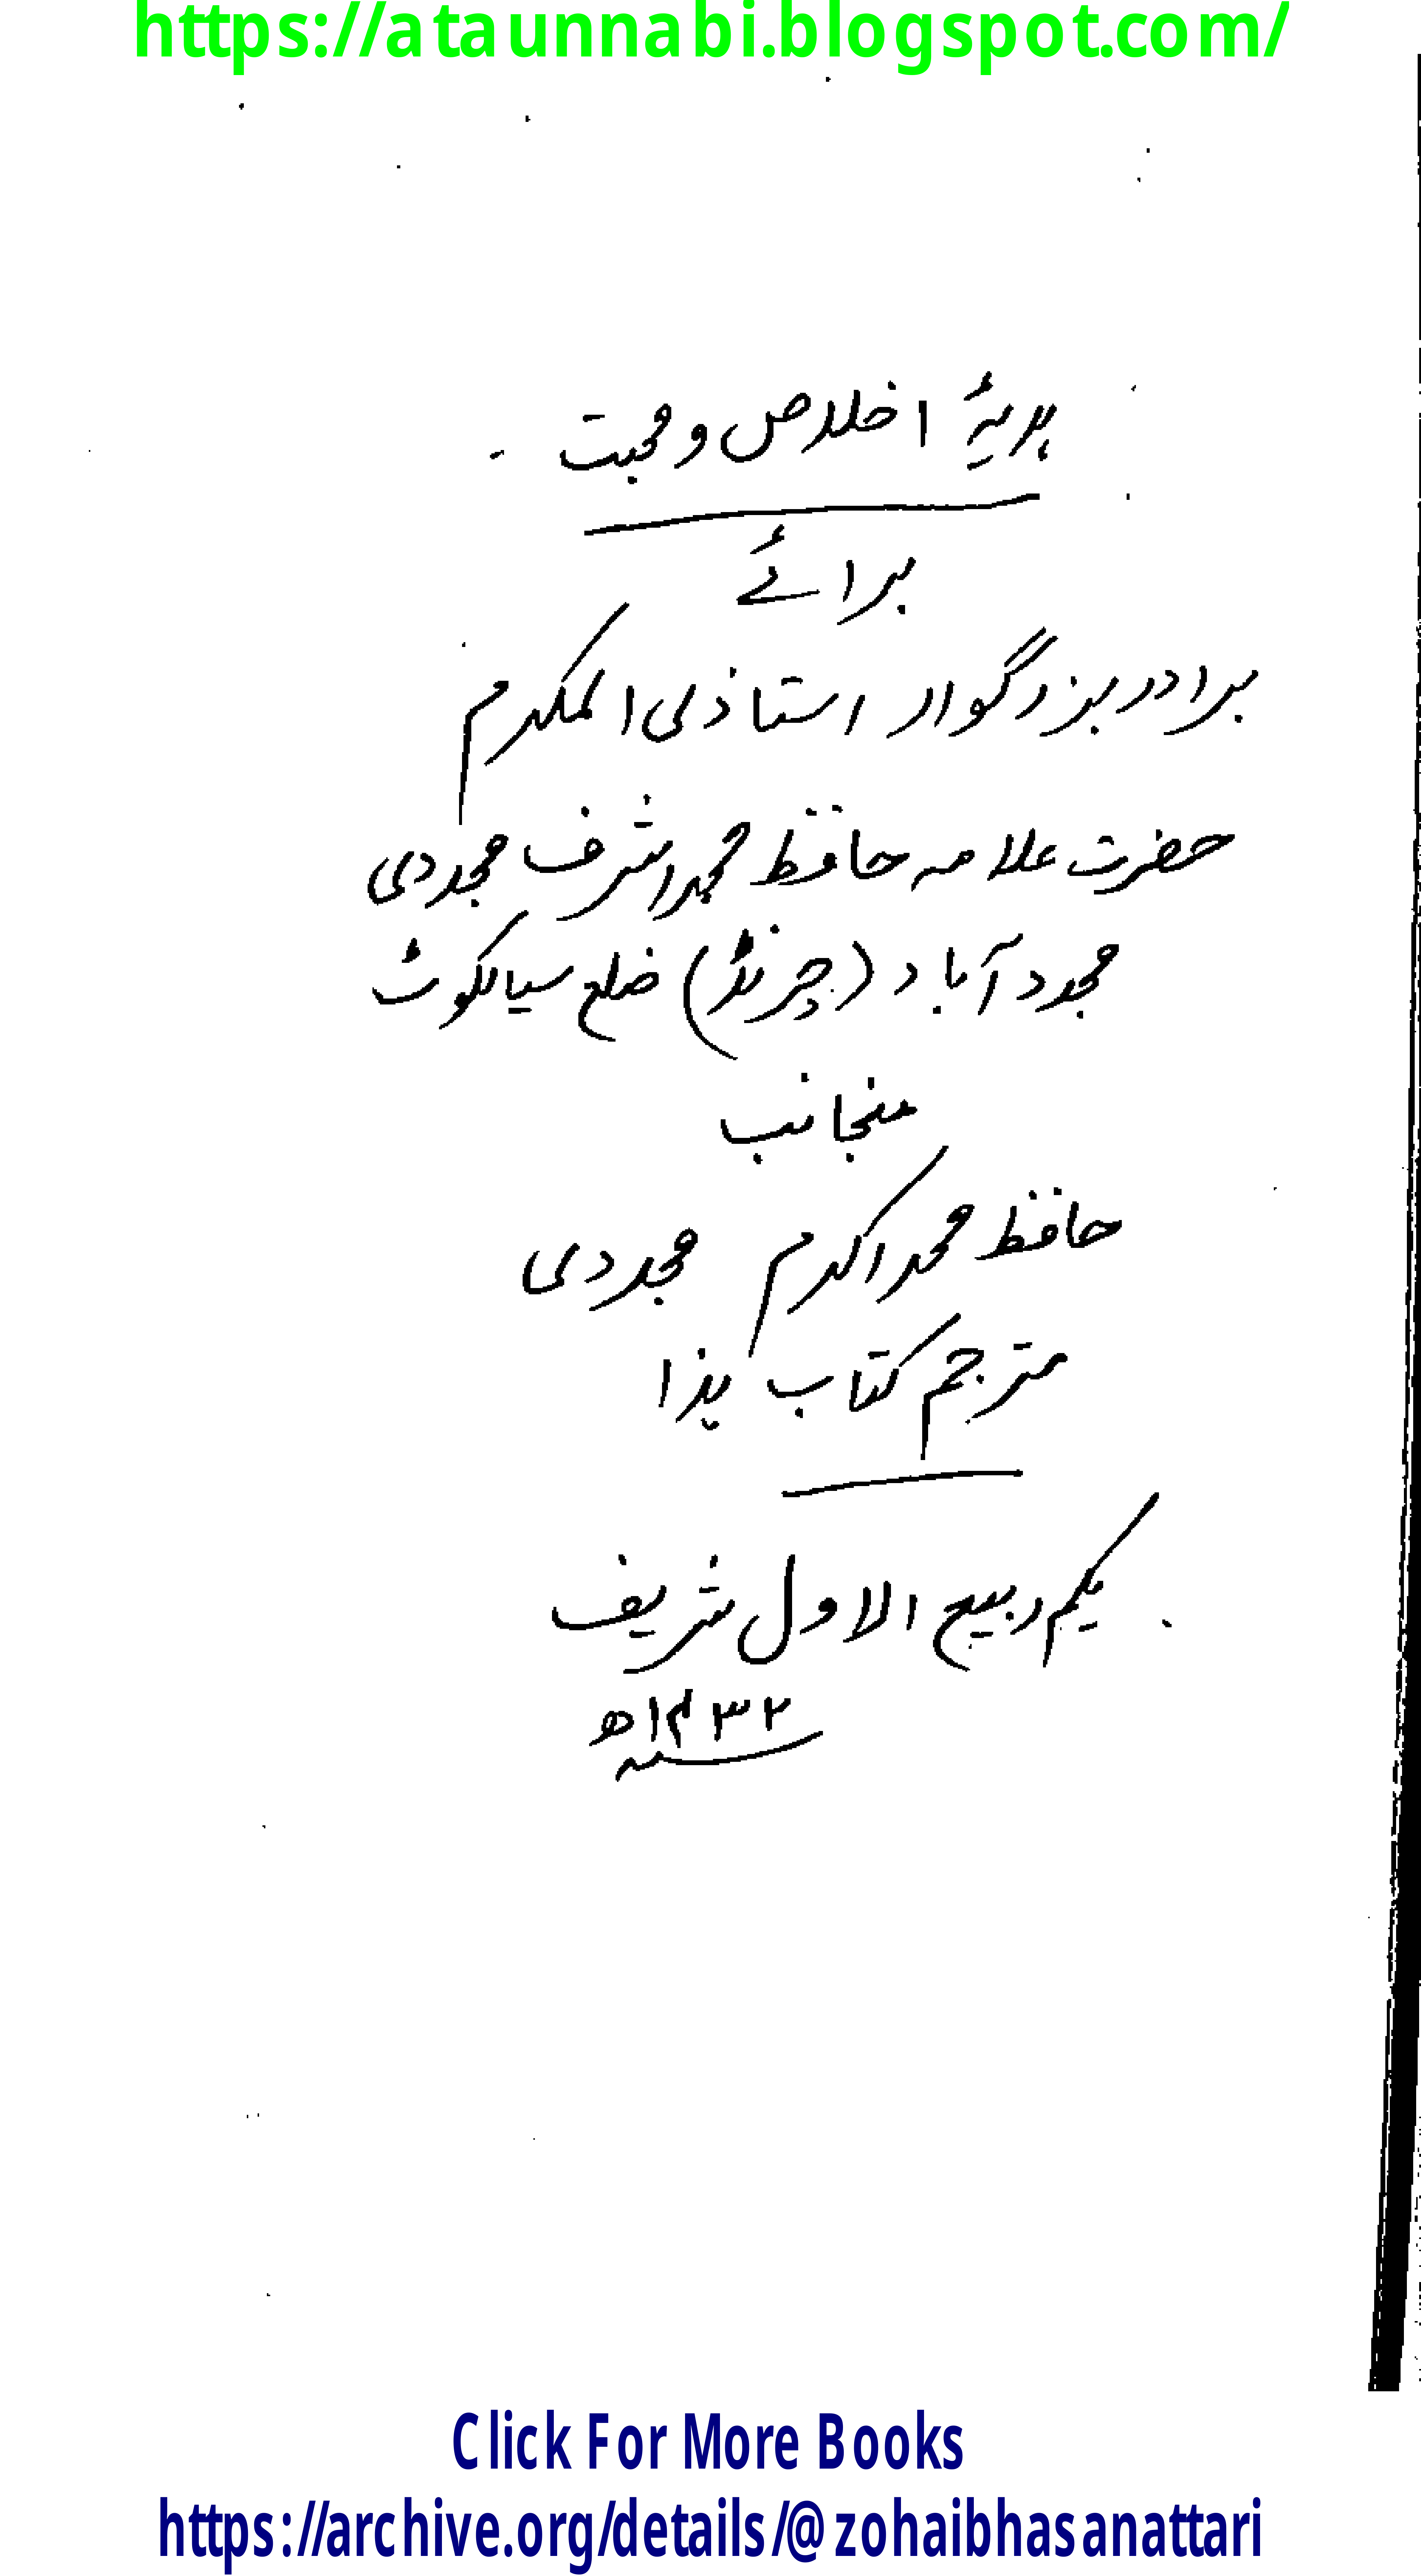 https://ataunnabi.blogspot.com/
ہدیۂ اخلاص و محبت
برائے
برادر بزرگوار استاذی المکرم
حضرت علامہ حافظ محمد اشرف مجددی
مجدد آباد (چرنڈ) ضلع سیالکوٹ
منجانب
حافظ محمد اکرم مجددی
مترجم کتاب ہذا
یکم ربیع الاول شریف
۱۴۳۲ھ
Click For More Books
https://archive.org/details/@zohaibhasanattari